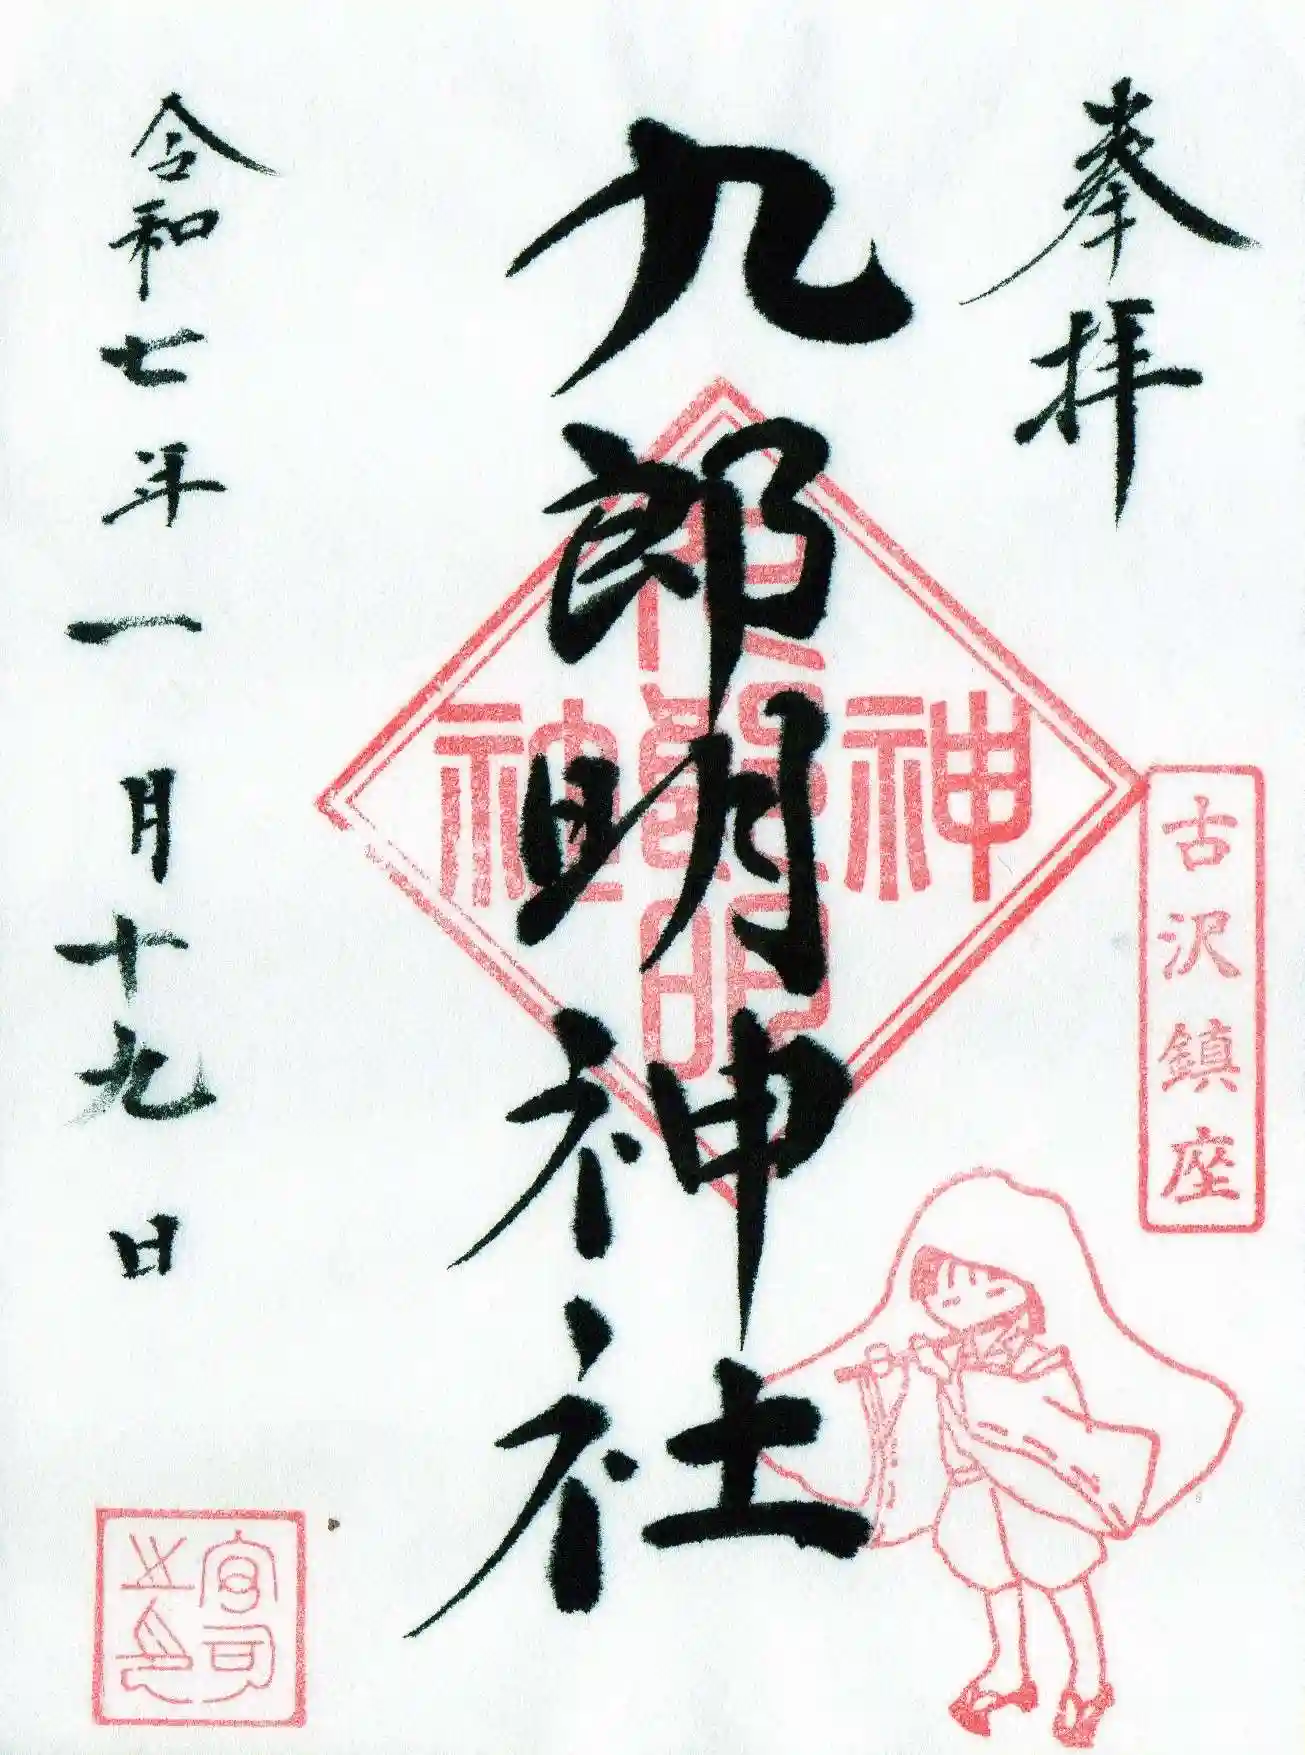 奉拝
古沢鎮座
九郎明神社
神社
九郎明
令和七年一月十九日
宮司之印